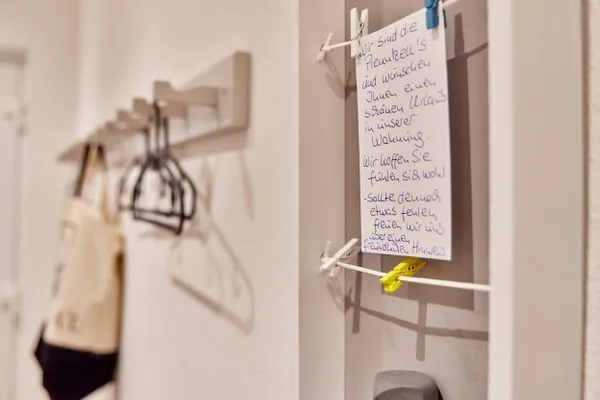 Wir sind die
Rennzell's
und wünschen
Ihnen einen
schönen Urlaub
in unserer
Wohnung.
Wir hoffen Sie
fühlen sich wohl
-sollte dennoch
etwas fehlen
freuen wir uns
über einen
freundlichen Hinweis